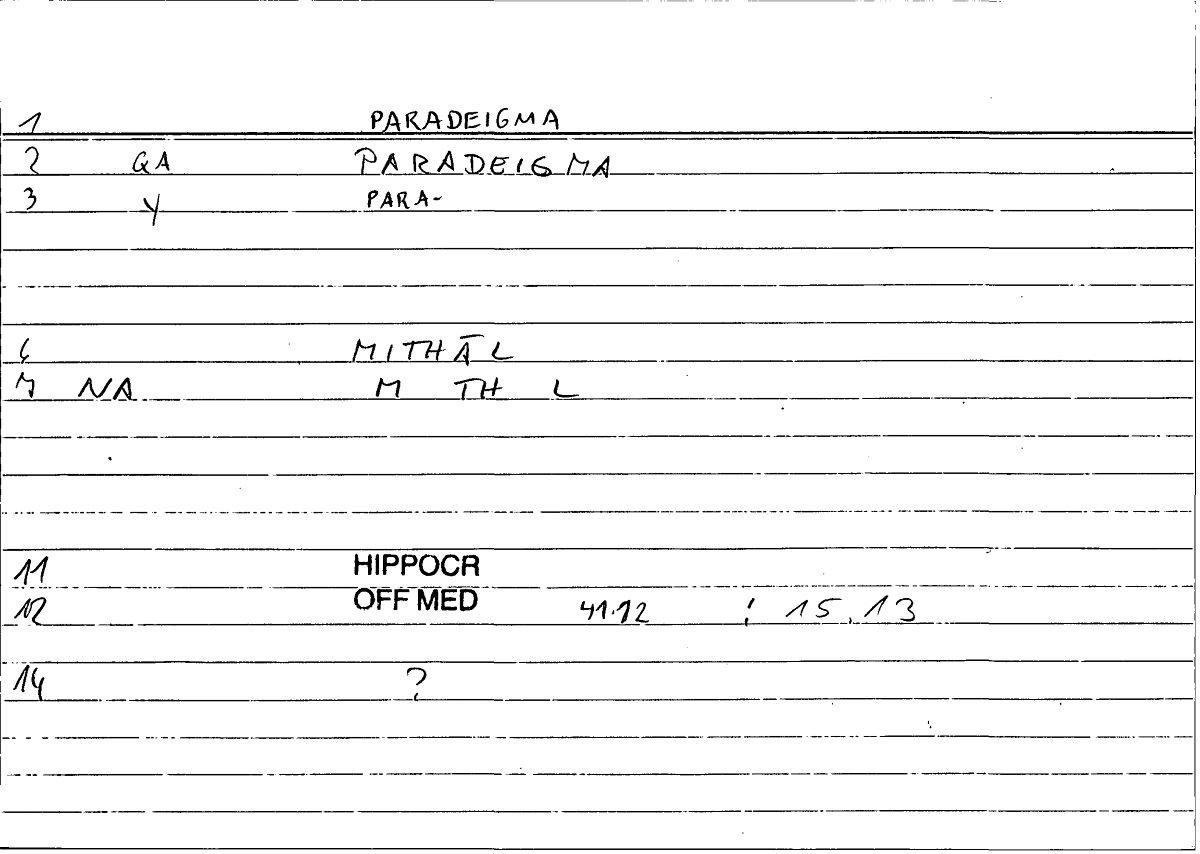 1 PARADEIGMA
2 QA PARADEIGMA
3 Y PARA-
6 MITHĀL
7 NA M TH L
11 HIPPOCR
12 OFF MED 41.12 : 15,13
14 ?